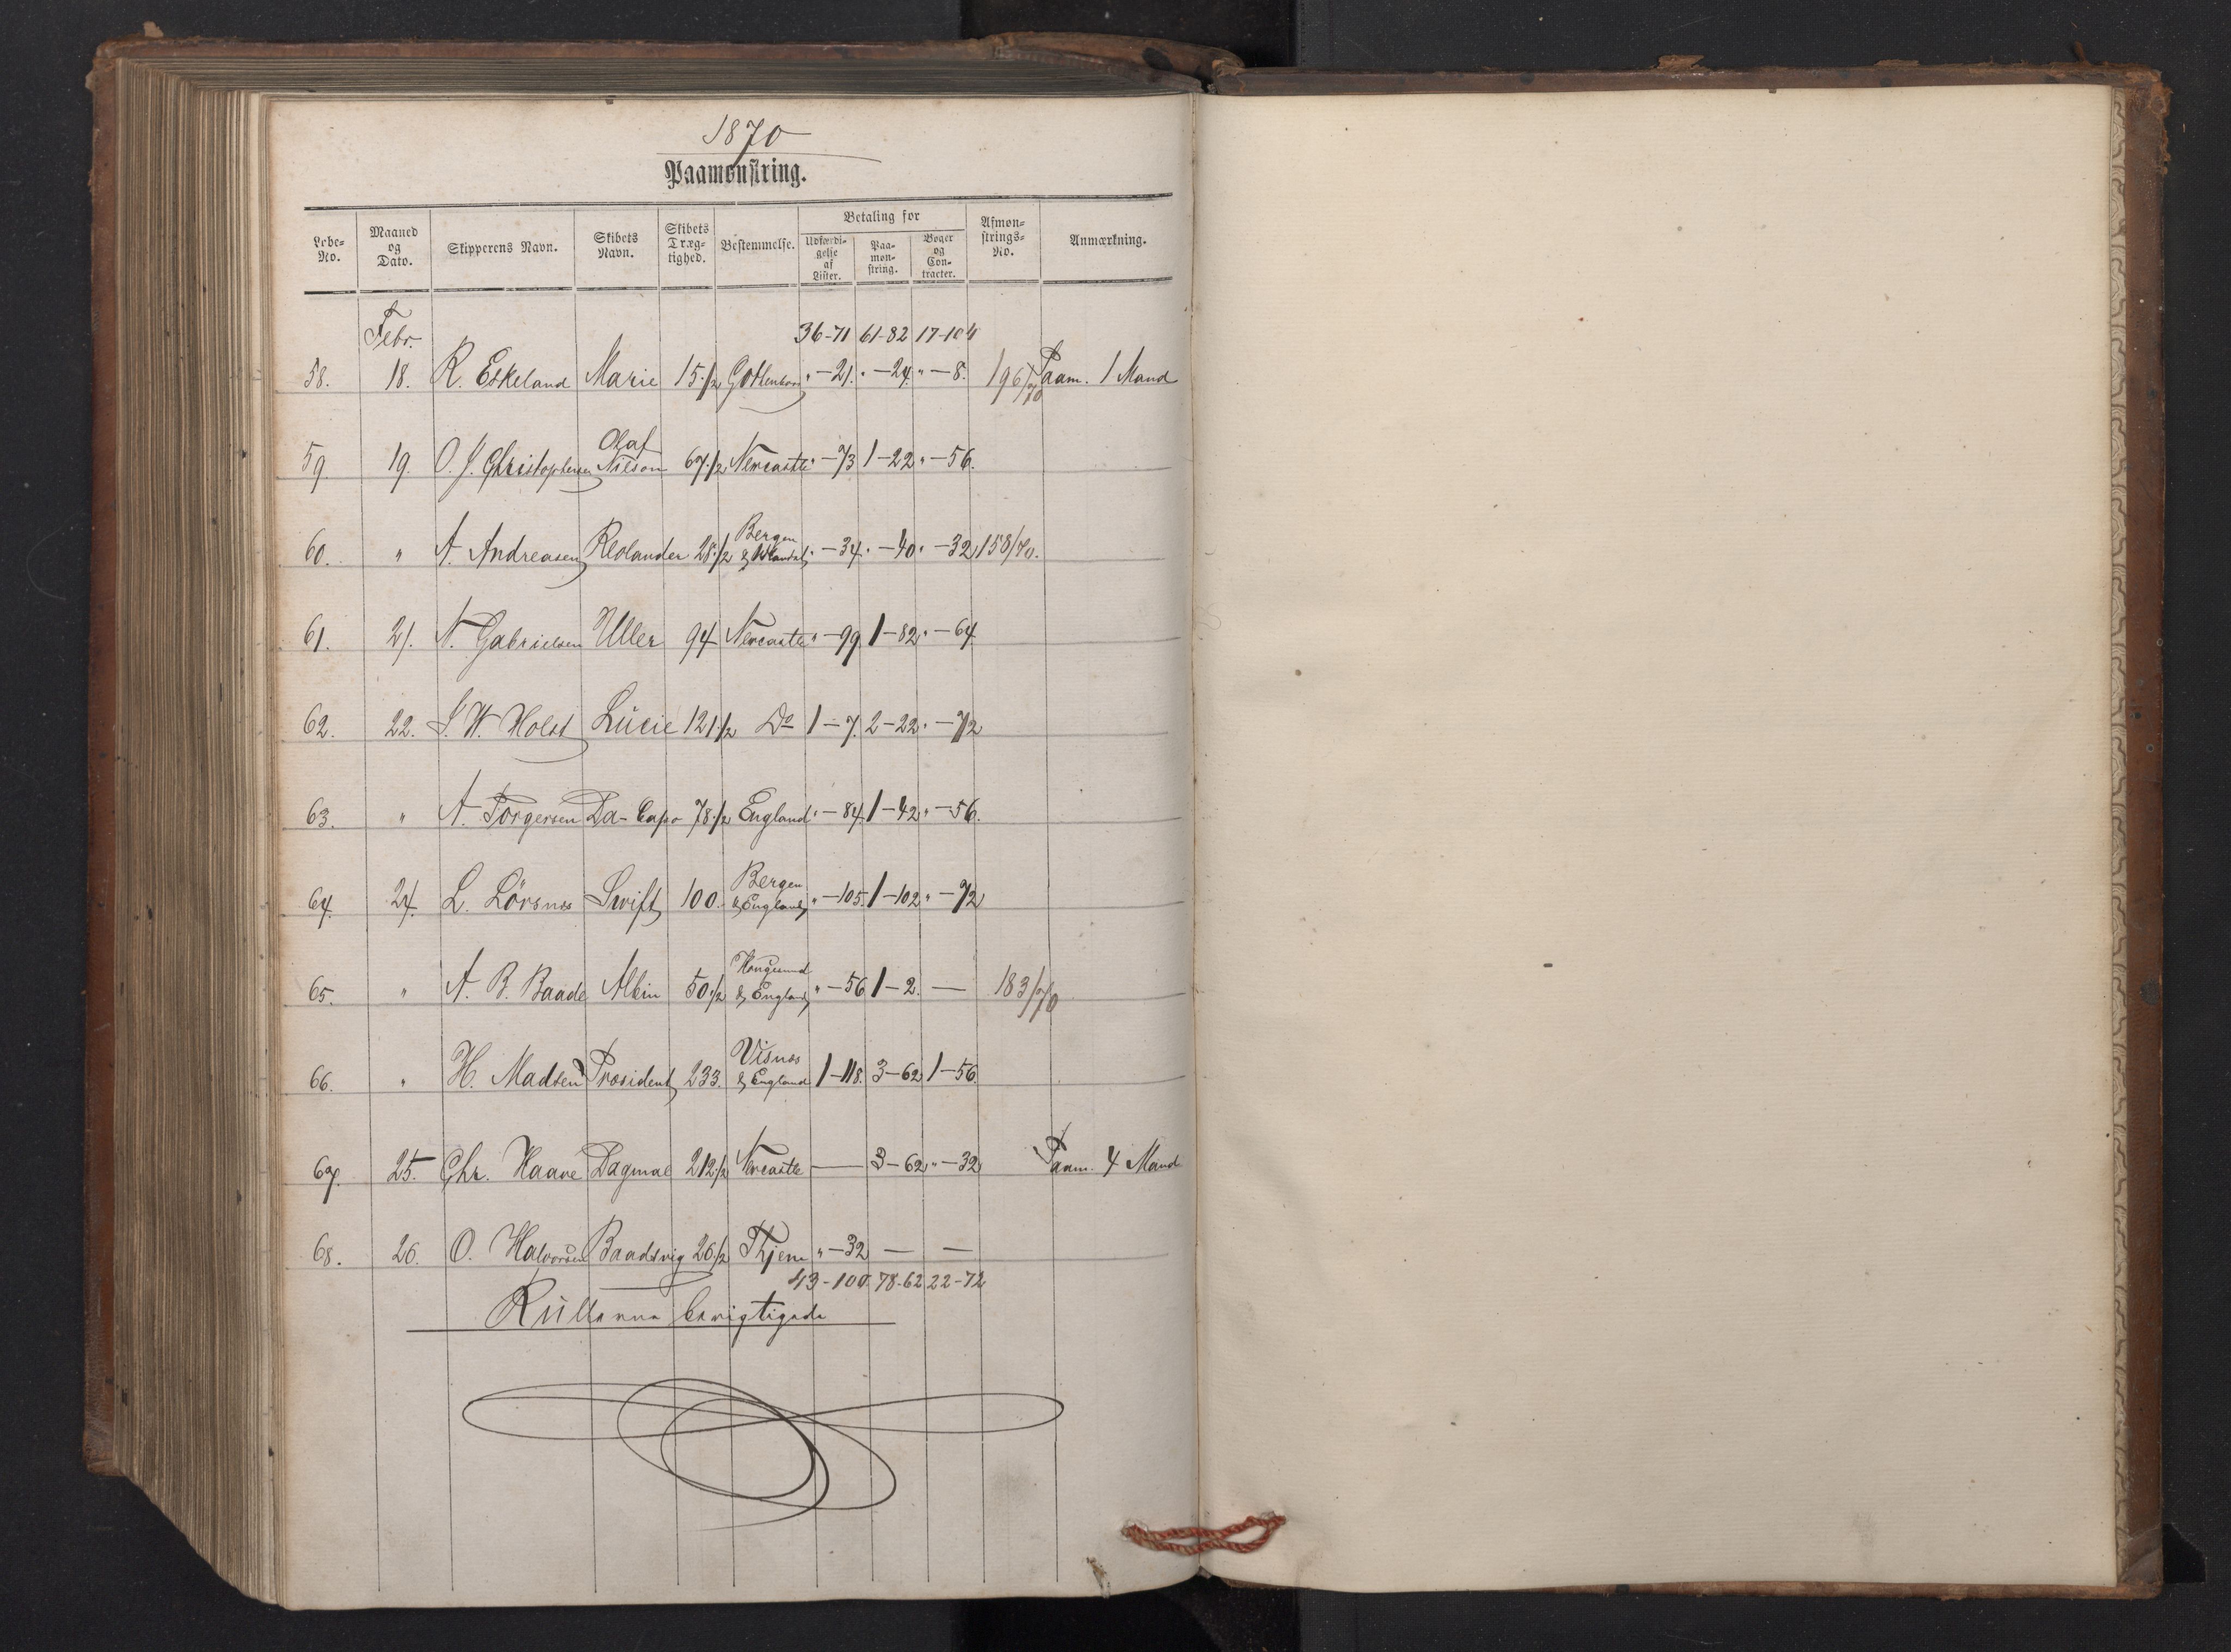 1870
Paamønstring.
Løbe-No. Maaned og Dato. Skipperens Navn. Skibets Navn. Skibets Dræg-tighed. Bestemmelse. Betaling for Udfærdi-gelse af Lister. Paa-møn-string. Bøger og Con-tracter. Afmøn-strings-No. Anmærkning.
Febr. 36-71 61-82 17-104
58. 18. R. Eskeland Marie 15 1/2 Gothenborg " - 21. " - 24. " - 8. 196/70 Paam. 1 Mand
59 19. O. J. Christophersen Olaf Nilson 67 1/2 Newcastle " - 73 1 - 22 " - 56.
60. " A. Andreasen Reolander 28 1/2 Bergen & " - 34. " - 40 " - 32 158/70.
61. 21. N. Gabrielsen Uller 94 Newcastle " - 99. 1 - 82 " - 64.
62. 22. S. W. Holst Lucie 121 1/2 Do 1 - 7. 2 - 22 " - 72
63. " A. Torgersen Da-Capo 78 1/2 England " - 84. 1 - 42 " - 56.
64. 24. L. Lörsnes Swift 100. Bergen & England " - 105. 1 - 102 " - 72
65. " A. B. Baade Albin 50 1/2 Haugesund & England " - 56 1 - 2. — 183/70
66. " H. Madsen Præsident 233. Visnes & England 1 - 118. 3 - 62 1 - 56.
67. 25. Chr. Haave Dagmar 212 1/2 Newcastle — 3 - 62 " - 32 Paam. 4 Mand
68. 26. O. Halvorsen Baadsvig 26 1/2 " - 32 — —
43-100. 78-62 22-72
Rullerne berigtigede